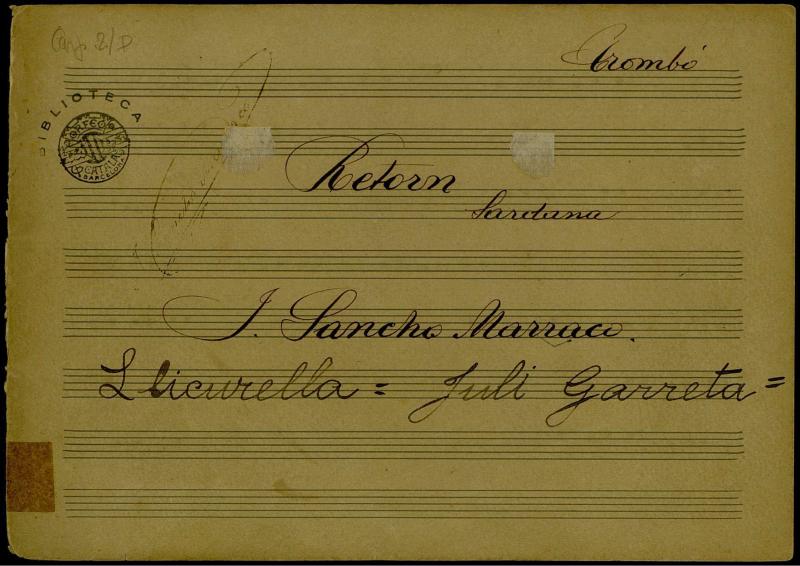 Trombó
BIBLIOTECA
ORFEÓ
CATALÀ
BARCELONA
Retorn
Sardana
J. Sancho Marraco.
Llicurella = Juli Garreta =